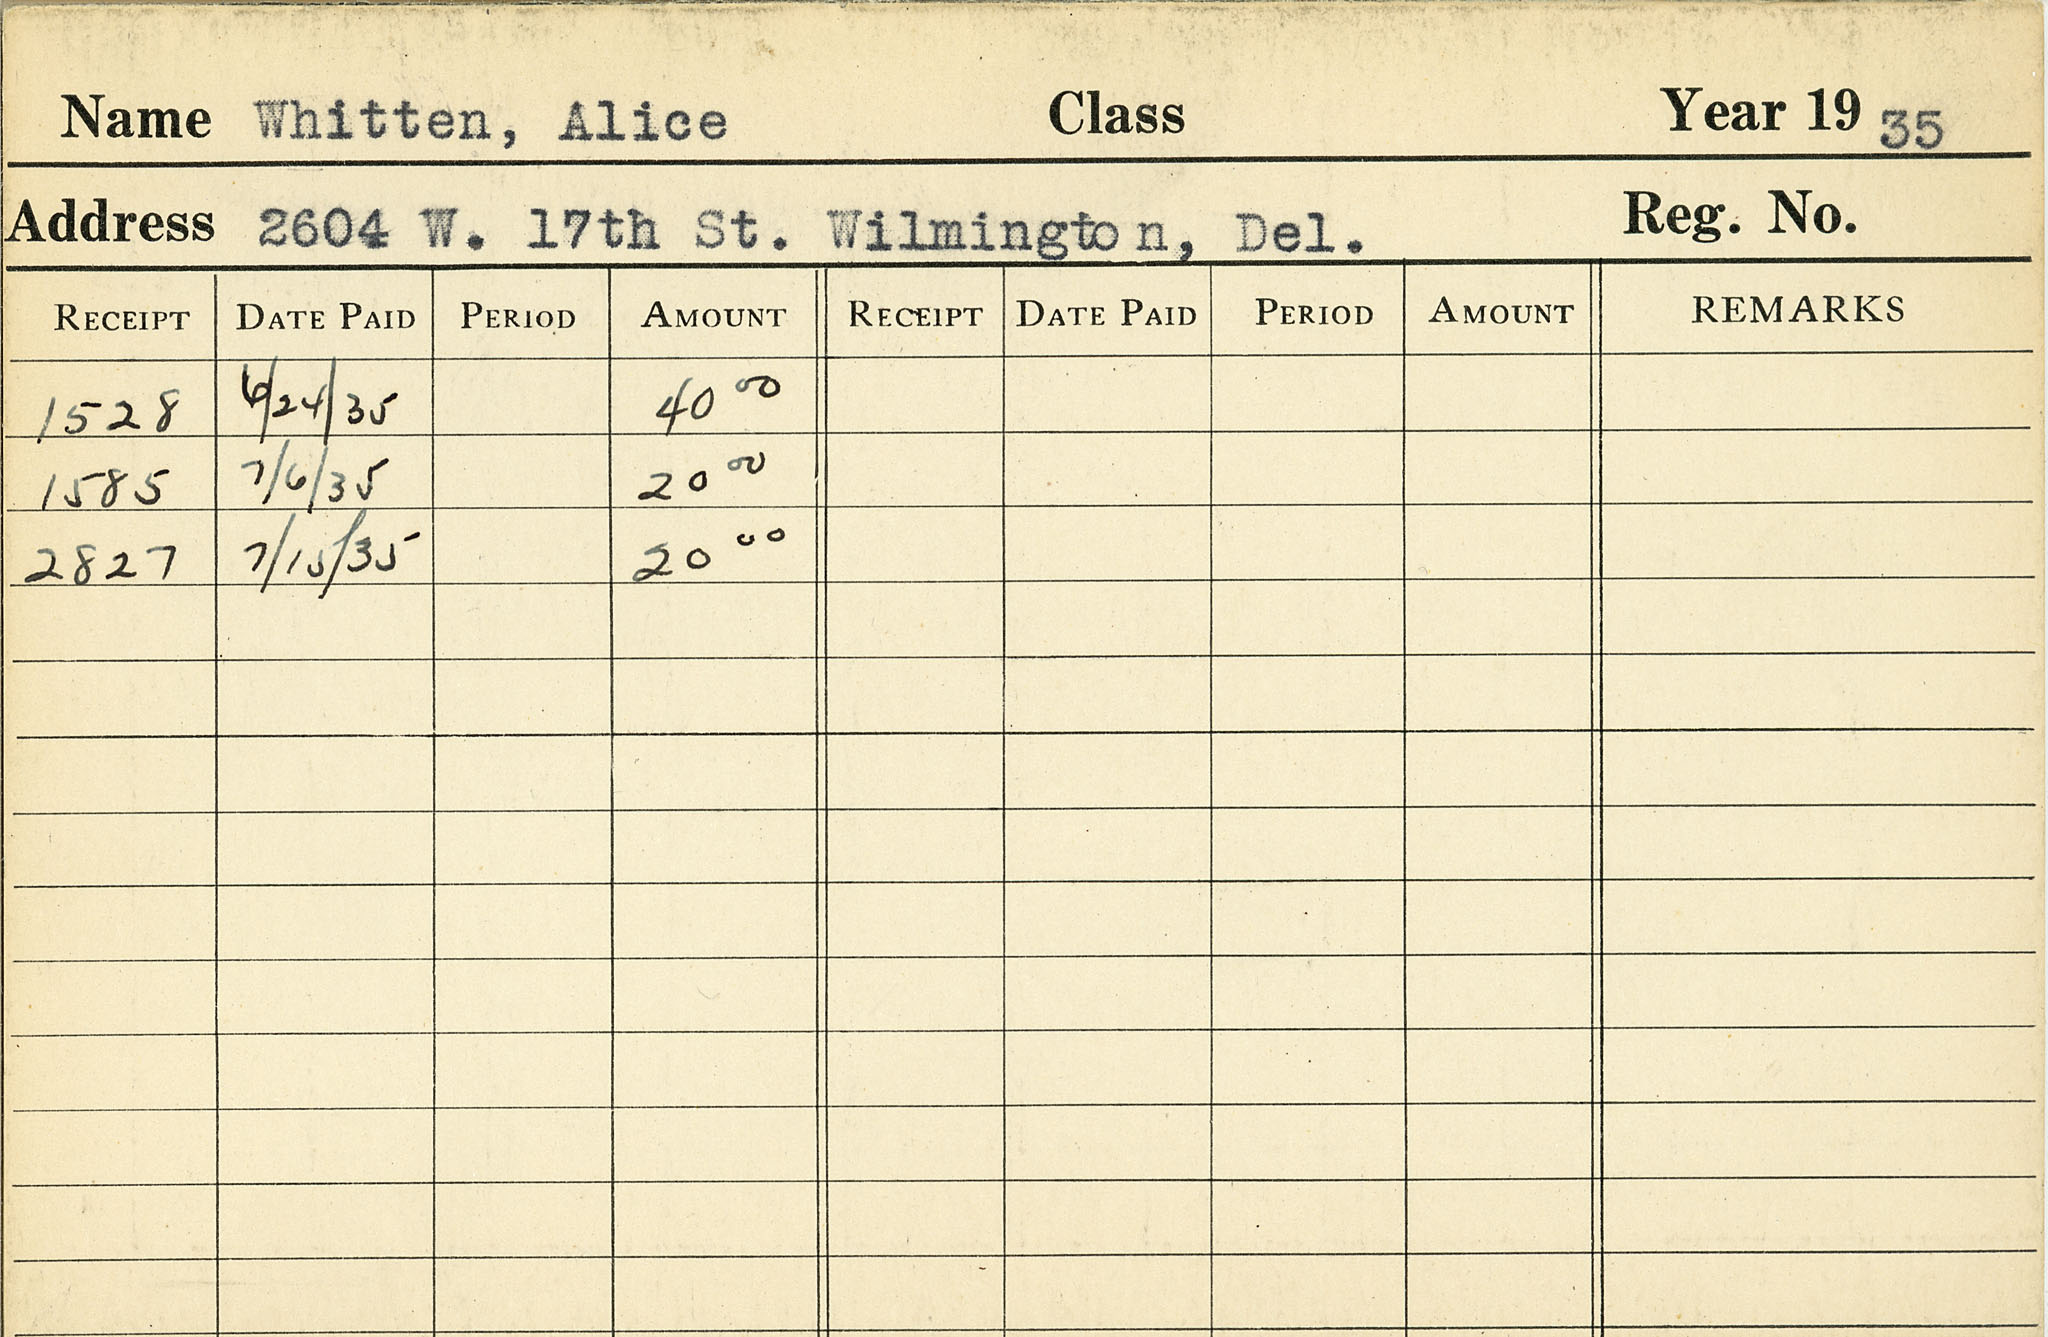 Name Whitten, Alice Class Year 19 35
Address 2604 W. 17th St. Wilmington, Del. Reg. No.
RECEIPT DATE PAID PERIOD AMOUNT RECEIPT DATE PAID PERIOD AMOUNT REMARKS
1528 6/24/35 40 00
1585 7/6/35 20 00
2827 7/15/35 20 00